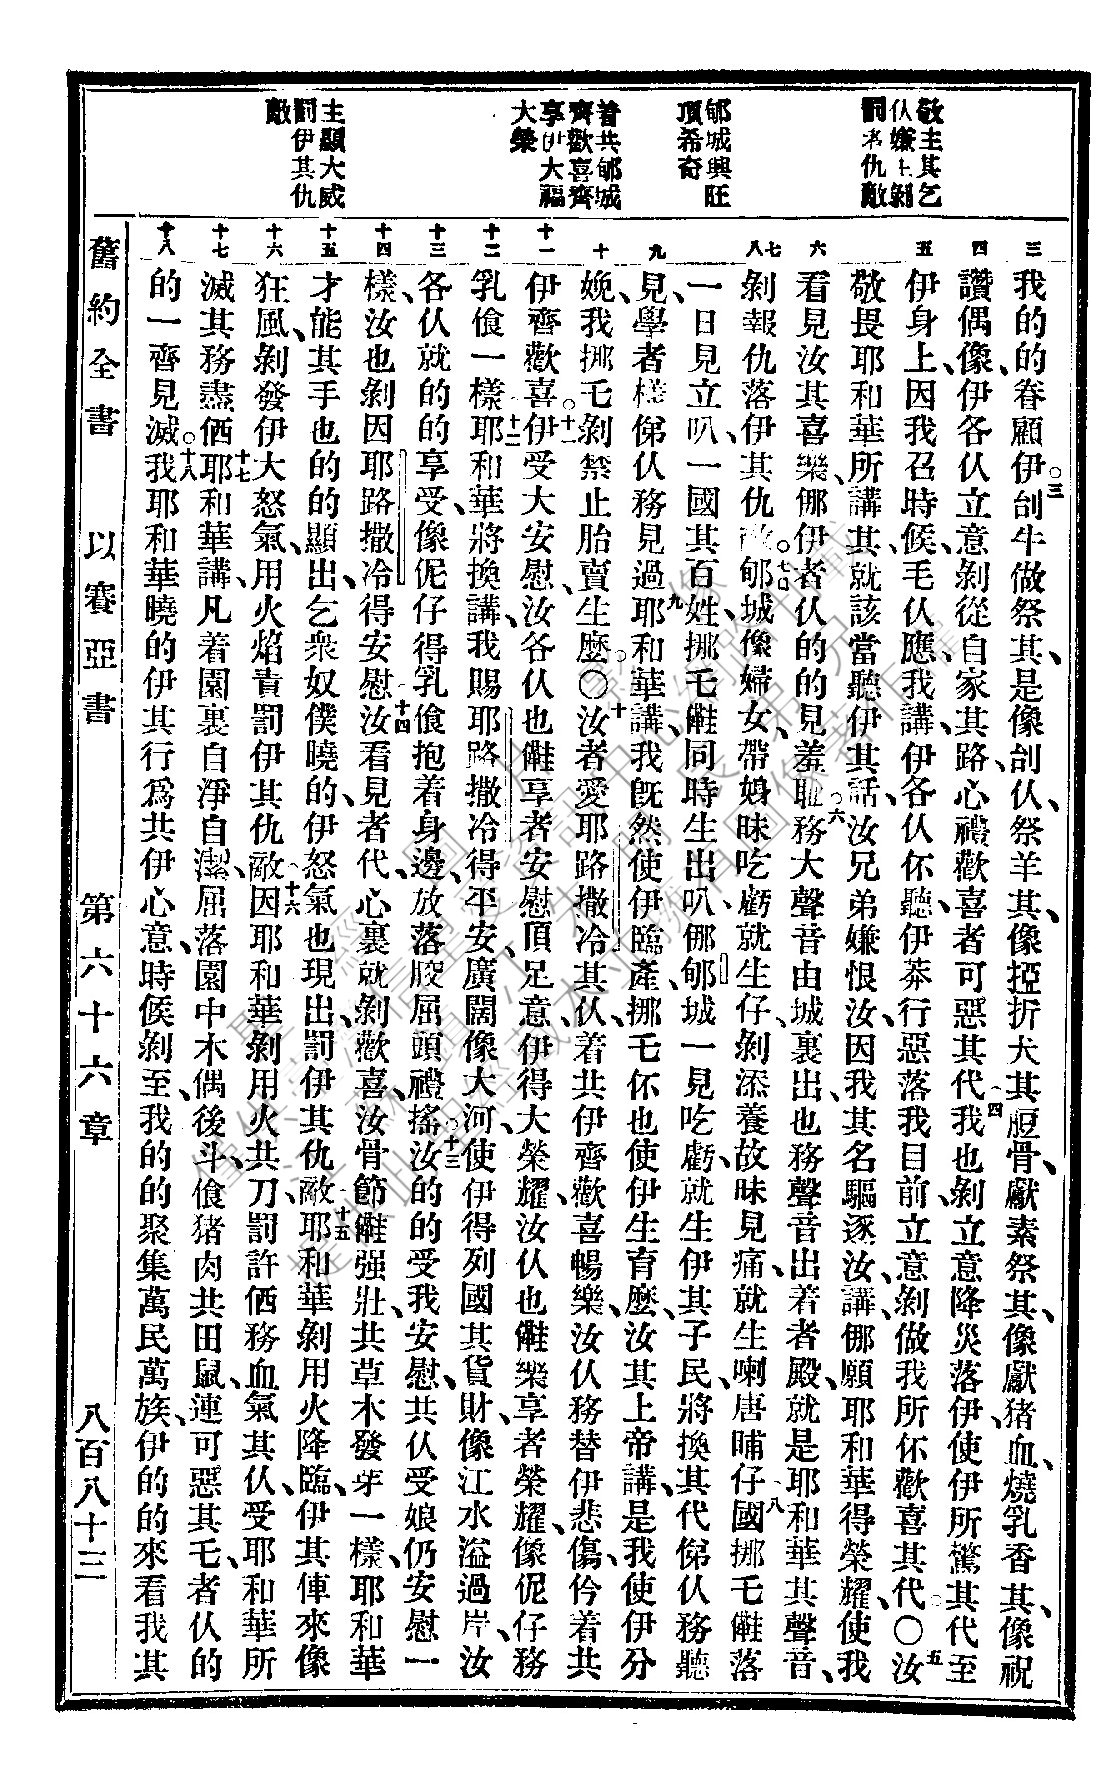 敬主其乞
仇嫌上剝
罰其仇敵
郇城興旺
頂希奇
著共郇城
齊歡喜齊
享伊大福
大榮
主顯大威
罰伊其仇
敵
三
四
五
六
七
八
九
十
十一
十二
十三
十四
十五
十六
十七
十八
我的的眷顧伊○三刣牛做祭其、是像刣仇、祭羊其、像掗折犬其脰骨、獻素祭其、像獻猪血、燒乳香其、像祝
讚偶像、伊各仇立意剝從自家其路、心禮歡喜者可惡其代、四我也剝立意降災落伊、使伊所驚其代至
伊身上、因我召時候、毛仇應我、講、伊各仇伓聽、伊莽行惡落我目前、立意剝做我所伓歡喜其代○五汝
敬畏耶和華所講其、就該當聽伊其話、汝兄弟嫌恨汝、因我其名驅逐汝、講、㑚願耶和華得榮耀、使我
看見汝其喜樂、㑚伊者仇的的見羞耻、○六務大聲音由城裏出、也務聲音出着者殿、就是耶和華其聲音、
剝報仇落伊其仇敵、○七郇城像婦女、帶娒昧吃虧就生仔、剝添養故昧見痛、就生喇唐晡仔、八國挪乇㒕落
一日見立叭、一國其百姓挪乇㒕同時生出叭、㑚郇城一見吃虧就生伊其子民、將換其代俤仇務聽
見、學者樣俤仇務見過、九耶和華講、我旣然使伊臨產、挪乇伓也使伊生育麼、汝其上帝講、是我使伊分
娩、我挪乇剝禁止胎賣生麼○十汝者愛耶路撒冷其仇、着共伊齊歡喜暢樂、汝仇務替伊悲傷、仱着共
伊齊歡喜、○十一伊受大安慰、汝各仇也㒕享者安慰頂足意、伊得大榮耀、汝仇也㒕樂享者榮耀、像伲仔務
乳飡一樣、十二耶和華將換講、我賜耶路撒冷得平安、廣闊像大河、使伊得列國其貨財、像江水溢過岸、汝
各仇就的的享受、像伲仔得乳飡、抱着身邊、放落骹屈頭禮搖、○十三汝的的受我安慰、共仇受娘仍安慰一
樣、汝也剝因耶路撒冷得安慰、十四汝看見者代、心裏就剝歡喜、汝骨節㒕强壯、共草木發芽一樣、耶和華
才能其手也的的顯出乞衆奴僕曉的、伊怒氣也現出、罰伊其仇敵、十五耶和華剝用火降臨、伊其俥來像
狂風、剝發伊大怒氣、用火焰責罰伊其仇敵、十六因耶和華剝用火共刀罰許価務血氣其仇、受耶和華所
滅其務盡価、十七耶和華講、凡着園裏自淨自潔、屈落園中木偶後斗、飡猪肉共田鼠、連可惡其乇、者仇的
的一齊見滅、○十八我耶和華曉的伊其行爲共伊心意、時候剝至、我的的聚集萬民萬族、伊的的來看我其
舊約全書 以賽亞書 第六十六章 八百八十三